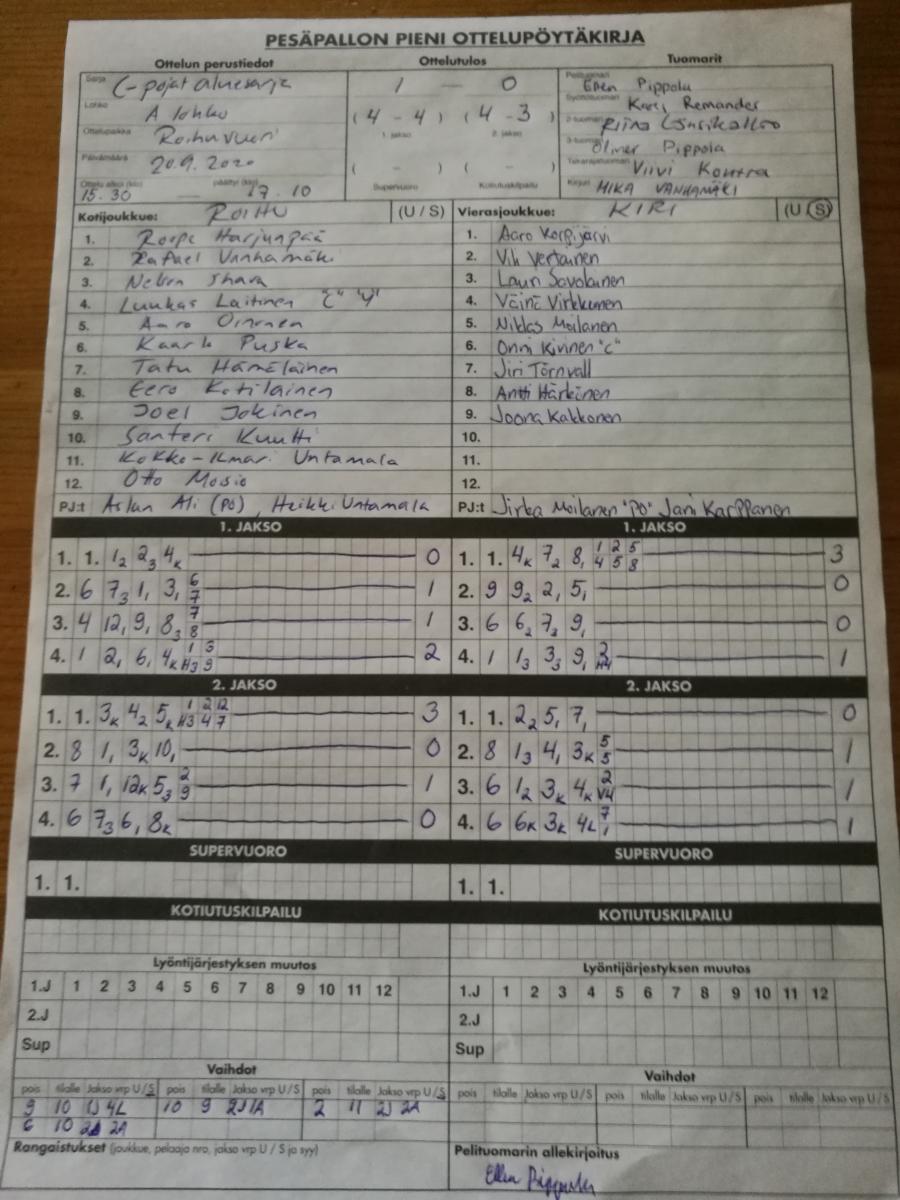 PESÄPALLON PIENI OTTELUPÖYTÄKIRJA
Ottelun perustiedot Ottelutulos Tuomarit
Sarja C-pojat aluesarja 1 — 0 Pelituomari Pippola
Lohko A lohko (4 - 4) (4 - 3) Syöttötuomari Remander
Ottelupaikka Roihuvuori 1. jakso 2. jakso 2-tuomari Riina
Päivämäärä 20.9.2020 ( - ) ( - ) 3-tuomari Pippola
Ottelu alkoi (klo) 15.30 — päättyi (klo) 17.10 Supervuoro Kotiutuskilpailu Takarajatuomari Viivi Kontra
Kirjuri MIKA VANHAMÄKI
Kotijoukkue: ROIHU (U / S) Vierasjoukkue: KIRI (U S)
1. Roope Harjunpää 1. Aaro Korpijärvi
2. Rafael Vanhamäki 2. Vili Vertainen
3. Nelson Shava 3. Lauri Savolainen
4. Luukas Laitinen "C" 4. Väinö Virkkunen
5. Aaro Oinonen 5. Niklas Moilanen
6. Kaarlo Puska 6. Onni Kivinen "C"
7. Tatu Hämäläinen 7. Jiri Törnvall
8. Eero Kotilainen 8. Antti Härkönen
9. Joel Jokinen 9. Joona Kakkonen
10. Santeri Kuutti 10.
11. Kokko-Ilmari Untamala 11.
12. Otto Mosio 12.
PJ:t Aslan Ali (PO), Heikki Untamala PJ:t Jirka Moilanen "PO" Jani Karppanen
1. JAKSO 1. JAKSO
1. 1. 1₂ 2₃ 4ₖ 0 1. 1. 4ₖ 7₂ 8₁ 1/4 2/5 5/8 3
2. 6 7₃ 1₁ 3₁ 6/7 1 2. 9 9₂ 2₁ 5₁ 0
3. 4 12₁ 9₁ 8₃ 7/8 1 3. 6 6₂ 7₂ 9₁ 0
4. 1 2₁ 6₁ 4ₖ 1/H3 3/9 2 4. 1 1₃ 3₃ 9₁ 2/H4 1
2. JAKSO 2. JAKSO
1. 1. 3ₖ 4₂ 5ₖ 1/H3 2/4 12/7 3 1. 1. 2₂ 5₁ 7₁ 0
2. 8 1₁ 3ₖ 10₁ 0 2. 8 1₃ 4₁ 3ₖ 5/5 1
3. 7 1₁ 12ₖ 5₃ 2/9 1 3. 6 1₂ 3ₖ 4ₖ 2/V4 1
4. 6 7₃ 6₁ 8ₖ 0 4. 6 6ₖ 3ₖ 4L 7/1 1
SUPERVUORO SUPERVUORO
1. 1. 1. 1.
KOTIUTUSKILPAILU KOTIUTUSKILPAILU
Lyöntijärjestyksen muutos Lyöntijärjestyksen muutos
1.J 1 2 3 4 5 6 7 8 9 10 11 12 1.J 1 2 3 4 5 6 7 8 9 10 11 12
2.J 2.J
Sup Sup
Vaihdot Vaihdot
pois tilalle Jakso vrp U / S pois tilalle Jakso vrp U / S pois tilalle Jakso vrp U / S pois tilalle Jakso vrp U / S pois tilalle Jakso vrp U / S pois tilalle Jakso vrp U / S
9 10 1J 4L 10 9 2J 1A 2 11 2J 2A
6 10 2A
Rangaistukset (joukkue, pelaaja nro, jakso vrp U / S ja syy) Pelituomarin allekirjoitus
Pippola